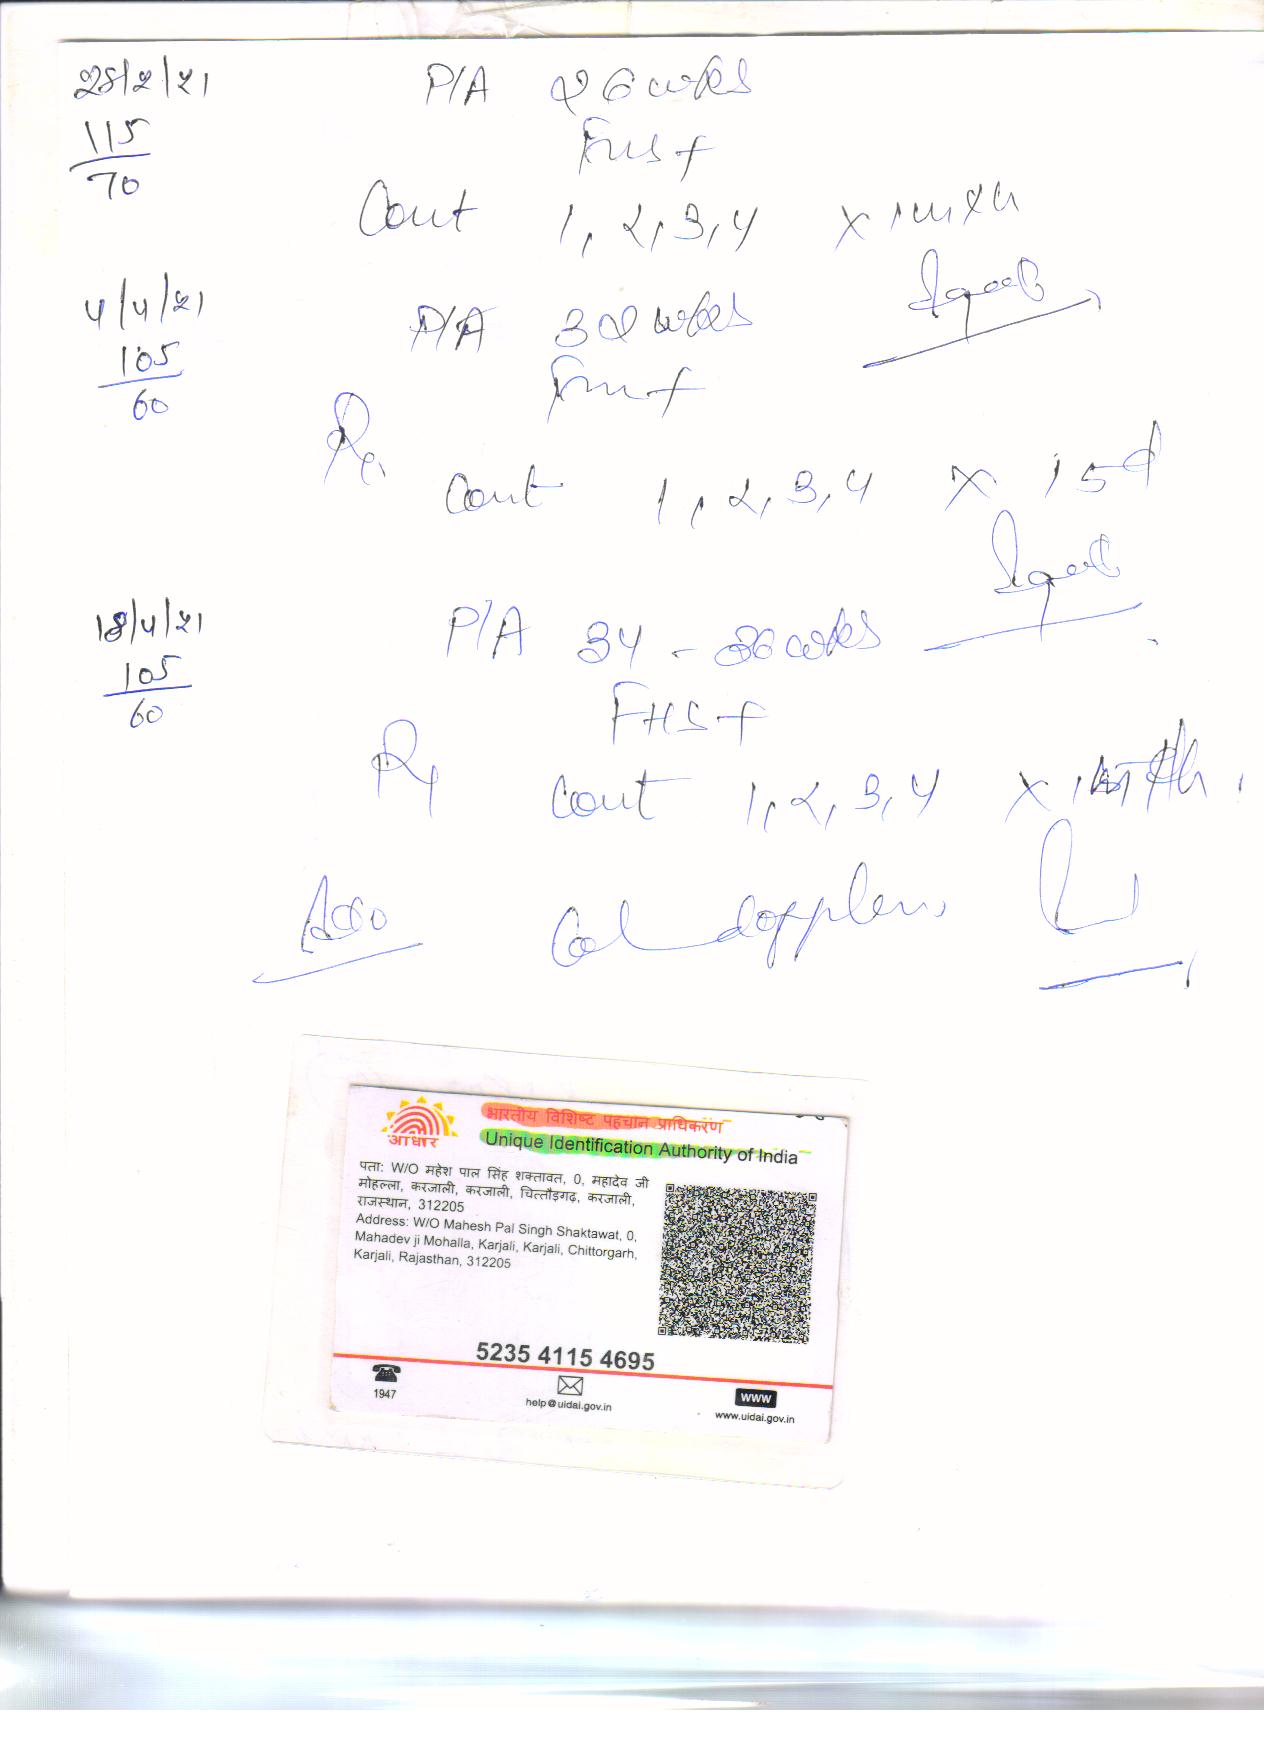 28/2/21
P/A 26 wks
115
FHS +
70
Cont 1, 2, 3, 4 x 1 mth
4/4/21
P/A 32 wks
105
60
Rx
Cont 1, 2, 3, 4 x 15 d
18/4/21
P/A 34 - 36 wks
105
FHS +
60
Rx
Cont 1, 2, 3, 4 x
Adv Col doppler
आधार
भारतीय विशिष्ट पहचान प्राधिकरण
Unique Identification Authority of India
पता: W/O महेश पाल सिंह शक्तावत, 0, महादेव जी
मोहल्ला, करजाली, करजाली, चित्तौड़गढ़, करजाली,
राजस्थान, 312205
Address: W/O Mahesh Pal Singh Shaktawat, 0,
Mahadev ji Mohalla, Karjali, Karjali, Chittorgarh,
Karjali, Rajasthan, 312205
5235 4115 4695
1947
help@uidai.gov.in
www
www.uidai.gov.in